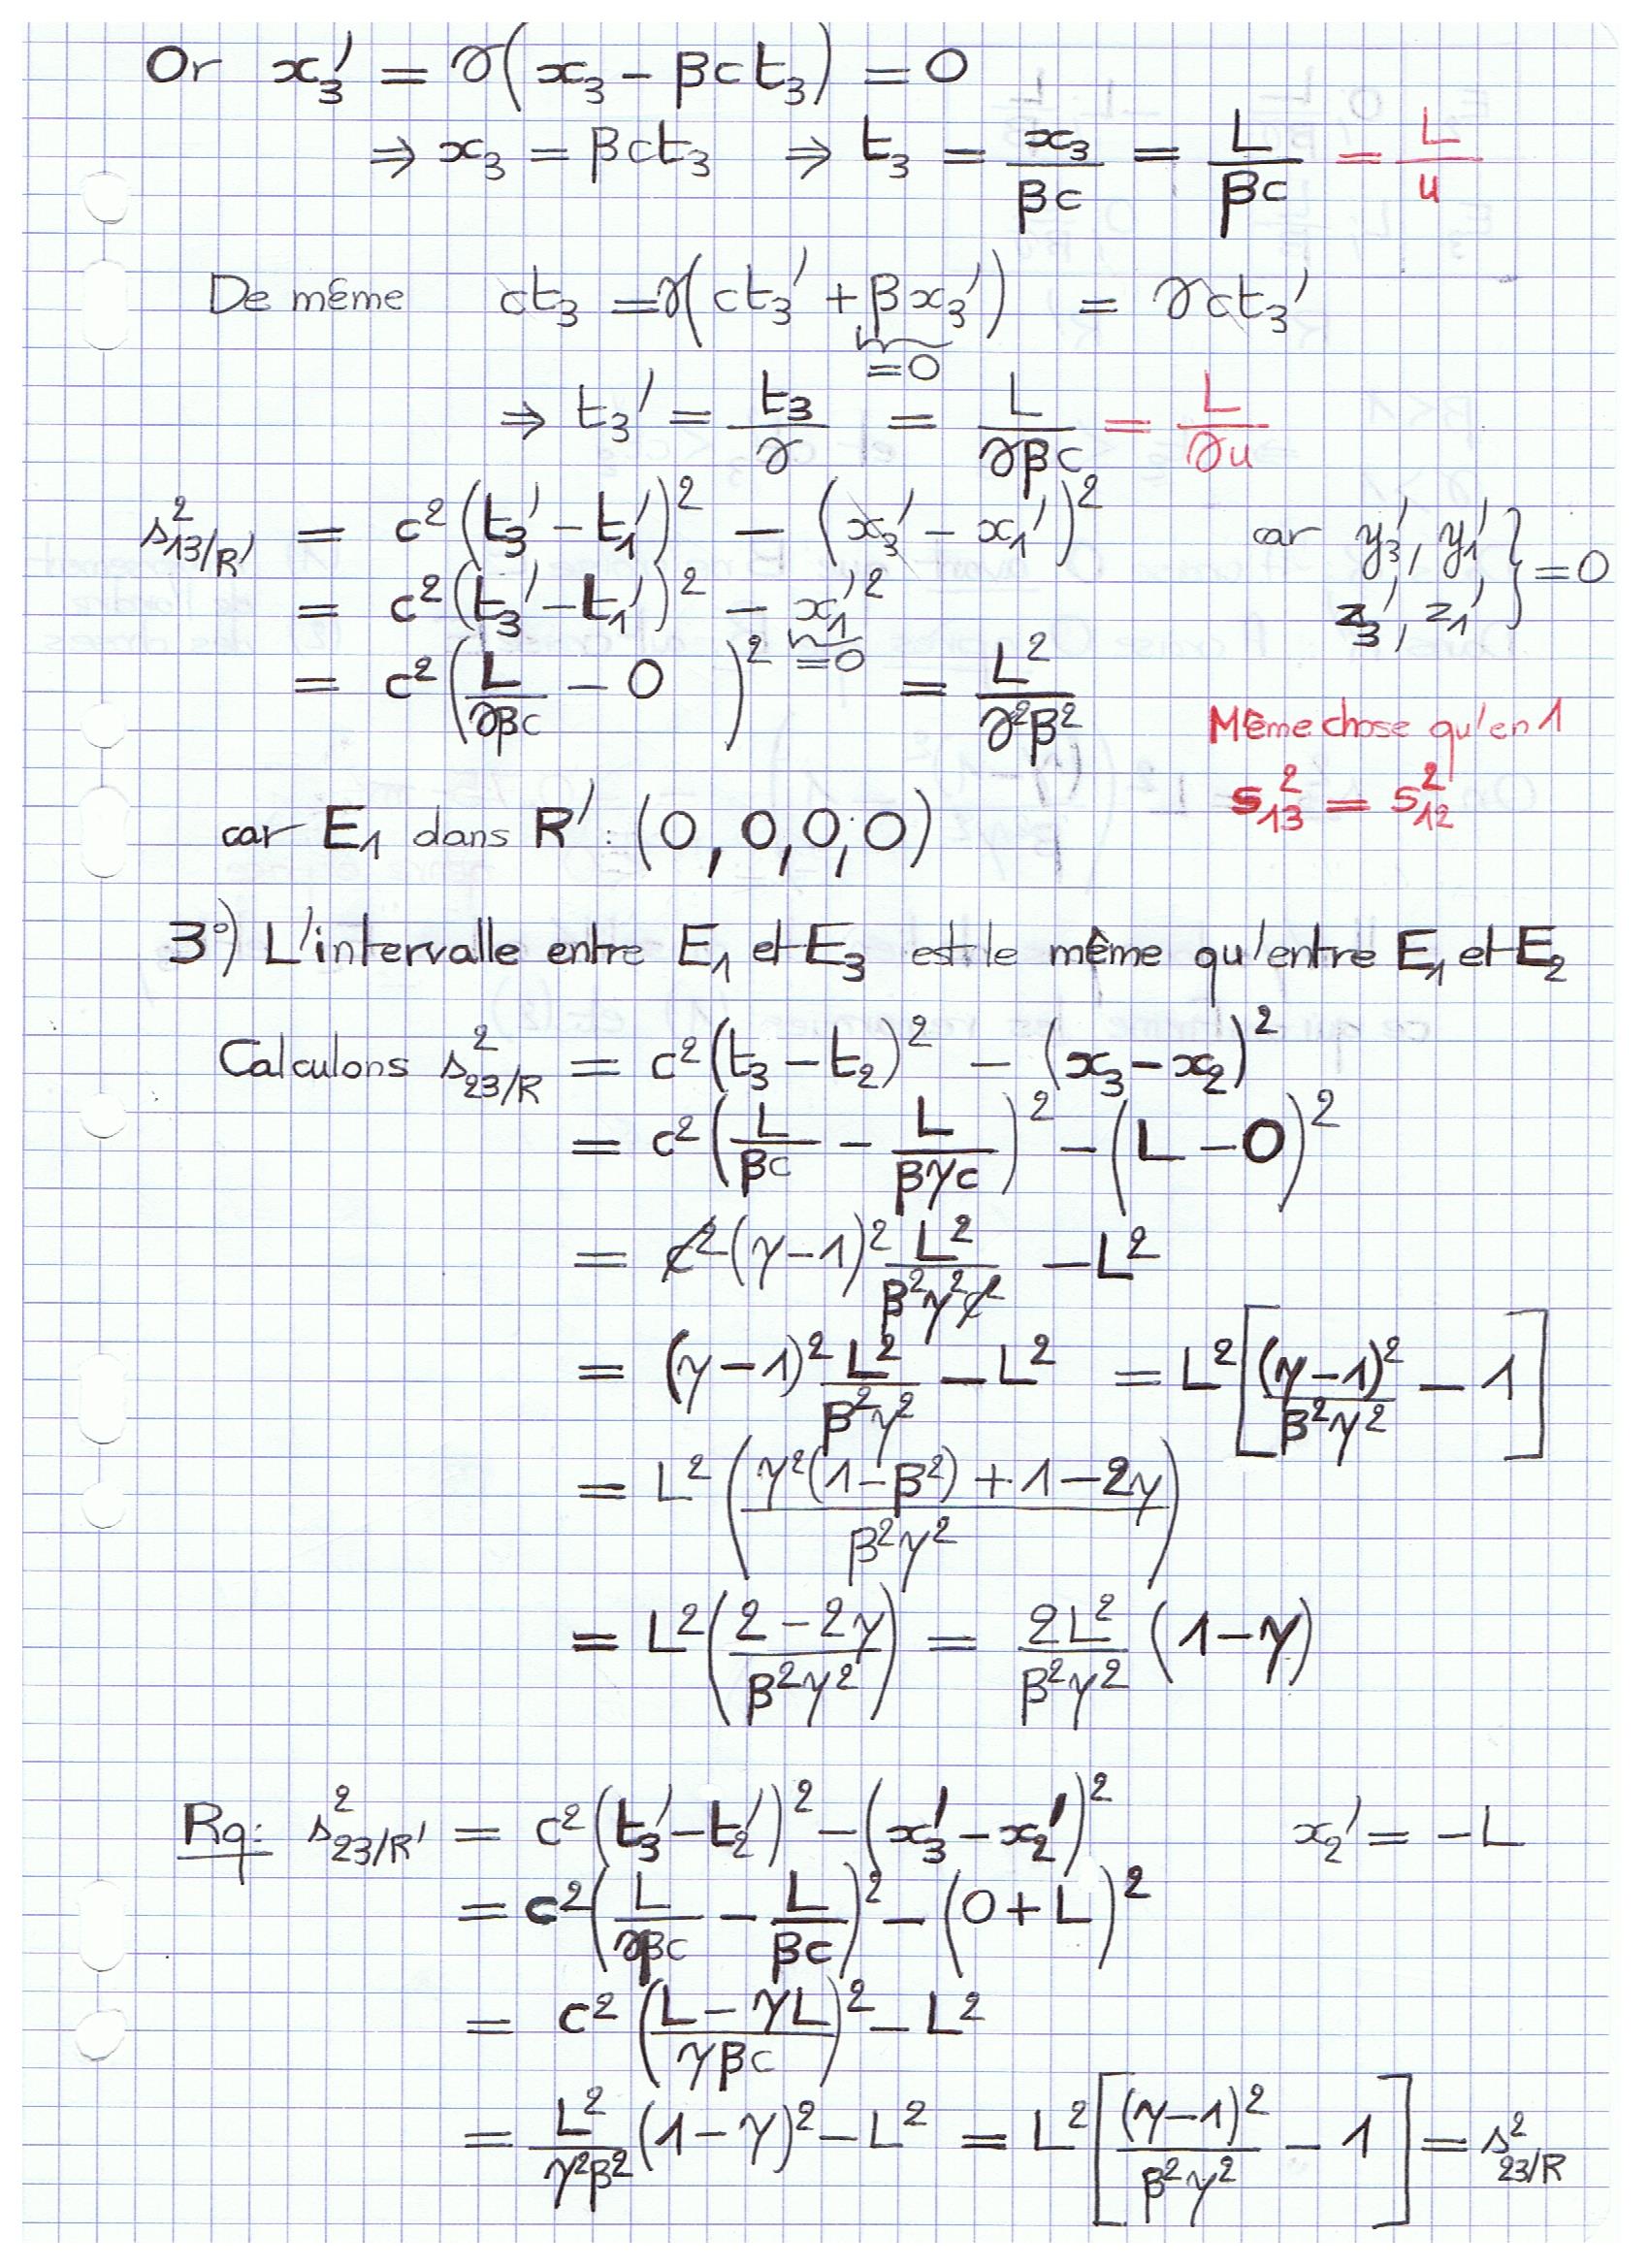 Or x₃' = γ(x₃ − βct₃) = 0
⇒ x₃ = βct₃ ⇒ t₃ = x₃/(βc) = L/(βc) = L/u
De même ct₃ = γ(ct₃' + βx₃') = γct₃'
= 0
⇒ t₃' = t₃/γ = L/(γβc) = L/(γu)
s²₁₃/R' = c²(t₃' − t₁')² − (x₃' − x₁')² car y₃', y₁', z₃', z₁' } = 0
= c²(t₃' − t₁')² − x₁'²
= 0
= c²(L/(γβc) − 0)² = L²/(γ²β²)
Même chose qu'en 1
s₁₃² = s₁₂²
car E₁ dans R' : (0, 0, 0, 0)
3°) L'intervalle entre E₁ et E₃ est le même qu'entre E₁ et E₂
Calculons s²₂₃/R = c²(t₃ − t₂)² − (x₃ − x₂)²
= c²(L/(βc) − L/(βγc))² − (L − 0)²
= c²(γ−1)² L²/(β²γ²c²) − L²
= (γ−1)² L²/(β²γ²) − L² = L²[(γ−1)²/(β²γ²) − 1]
= L²((γ²(1−β²) + 1 − 2γ)/(β²γ²))
= L²((2 − 2γ)/(β²γ²)) = 2L²/(β²γ²) (1−γ)
Rq: s²₂₃/R' = c²(t₃' − t₂')² − (x₃' − x₂')² x₂' = −L
= c²(L/(γβc) − L/(βc))² − (0 + L)²
= c²((L − γL)/(γβc))² − L²
= L²/(γ²β²) (1−γ)² − L² = L²[(γ−1)²/(β²γ²) − 1] = s²₂₃/R